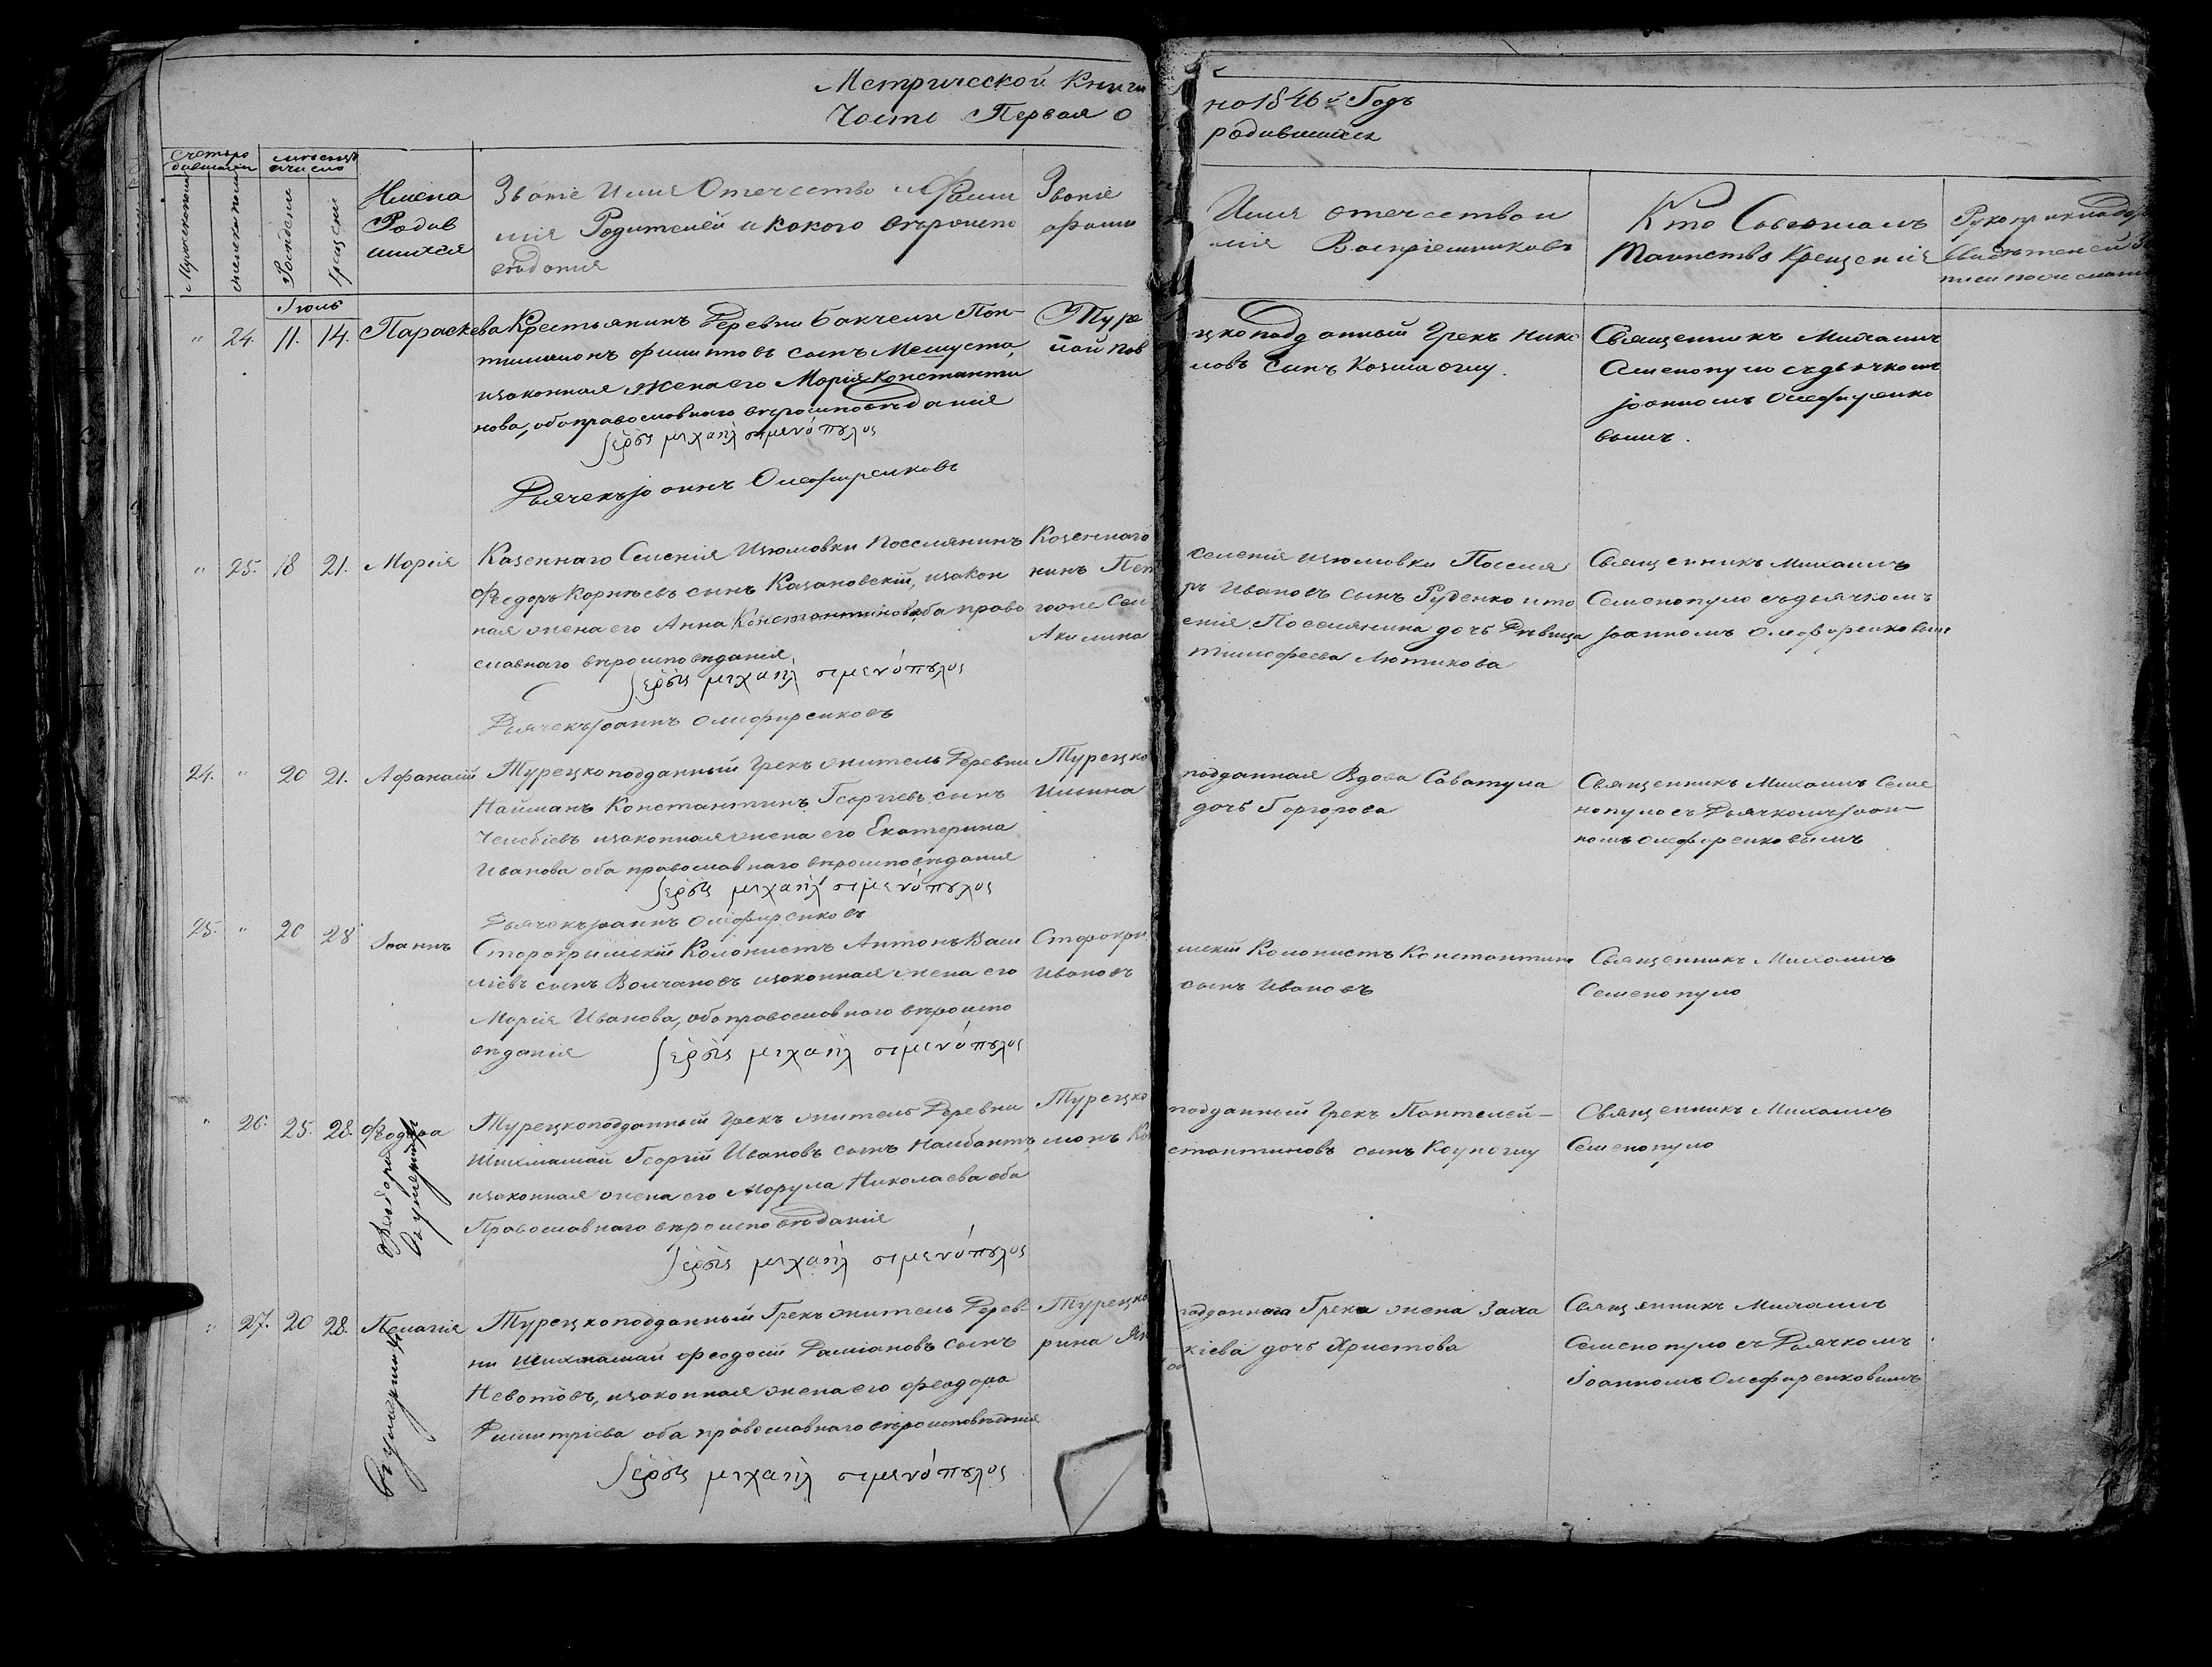 Метрической Книги на 1846й Годъ
Часть Первая о родившихся
Счетъ ро
дившихся
Мужеска пола
женска пола
месяцъ
и число
Рожденія
Крещенія
Имена
Родив
шихся
Званіе Имя Отечество и Фами
лія Родителей и какого вероиспо
веданія
Званіе Имя отечество и
фами лія Воспріемниковъ
Кто Совершалъ
Таинство Крещенія
Рукоприкладс
Свидетелей
писи по желані
Іюль
" 24. 11. 14. Параскева
Крестьянинъ Деревни Бакчели Пон-
тилимонъ Филиповъ сынъ Мешуста,
изаконная жена его Марія Константи
нова, оба православнаго вероисповеданія
ἱερεὺς μιχαὴλ σιμενόπȣλος
Дьячекъ Іоаннъ Олефиренковъ
Туре цкоподданный Грекъ Нико
лай Пав ловъ Сынъ Казилаоглу.
Священникъ Михаилъ
Семенопуло съ дьячкомъ
Іоанномъ Олефиренко
вымъ.
" 25. 18 21. Марія
Казеннаго Селенія Изюмовки Поселянинъ
Феодоръ Корнѣевъ сынъ Казановскій, изакон
ная жена его Анна Константинова, оба право
славнаго вероисповеданія
ἱερεὺς μιχαὴλ σιμενόπȣλος
Дьячекъ Іоаннъ Олефиренковъ
Казеннаго селенія изюмовки Поселя
нинъ Пет ръ Ивановъ сынъ Руденко и то
гоже Сел енія Поселянина дочь Дѣвица
Акилина Тимофеева Лютикова
Священникъ Михаилъ
Семенопуло съ дьячкомъ
Іоанномъ Олефиренковым
24. " 20 21. Афанасій
Турецкоподданный Грекъ житель Деревни
Найманъ Константинъ Георгіевъ сынъ
Челебіевъ изаконная жена его Екатерина
Иванова оба православнаго вероисповеданія
ἱερεὺς μιχαὴλ σιμενόπȣλος
Дьячекъ Іоаннъ Олефиренковъ
Турецко подданная Вдова Саватула
Ильина дочь Горгорова
Священникъ Михаилъ Семе
нопуло съ Дьячкомъ Іоан-
номъ Олефиренковымъ
25. " 20 28 Іоаннъ
Старокрымскій Колонистъ Антонъ Васи
ліевъ сынъ Волчановъ изаконная жена его
Марія Иванова, оба православнаго вероиспо
веданія
ἱερεὺς μιχαὴλ σιμενόπȣλος
Старокры мскій Колонистъ Константинъ
Ивановъ сынъ Ивановъ
Священникъ Михаилъ
Семенопуло
" 26. 25. 28. Феодора
Турецкоподданный Грекъ житель Деревни
Шихмамай Георгій Ивановъ сынъ Налбантъ,
изаконная жена его Марула Николаева оба
Православнаго вероисповеданія
ἱερεὺς μιχαὴλ σιμενόπȣλος
Турецко подданный Грекъ Пантелей-
монъ Кон стантиновъ сынъ Коупоглу
Священникъ Михаилъ
Семенопуло
" 27. 20 28. Пелагія
Турецкоподданный Грекъ житель Дерев-
ни Шихмамай Феодосій Даміановъ сынъ
Неватовъ, изаконная жена его Феодора
Димитріева оба православнаго вероисповеданія
ἱερεὺς μιχαὴλ σιμενόπȣλος
Турецко подданнаго Грека жена Заха
рина Ян кіева дочь Христова
Священникъ Михаилъ
Семенопуло съ Дьячкомъ
Іоанномъ Олефиренковымъ